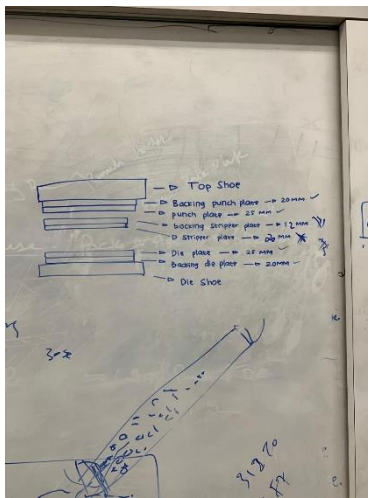 Top Shoe
Backing punch plate → 20mm ✓
punch plate → 25 mm ✓
backing stripper plate → 12 mm
stripper plate → mm
Die plate → 25 mm ✓
Backing die plate → 20mm ✓
Die Shoe